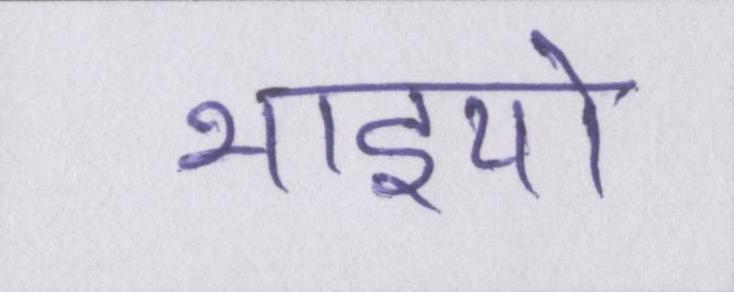 भाइयो